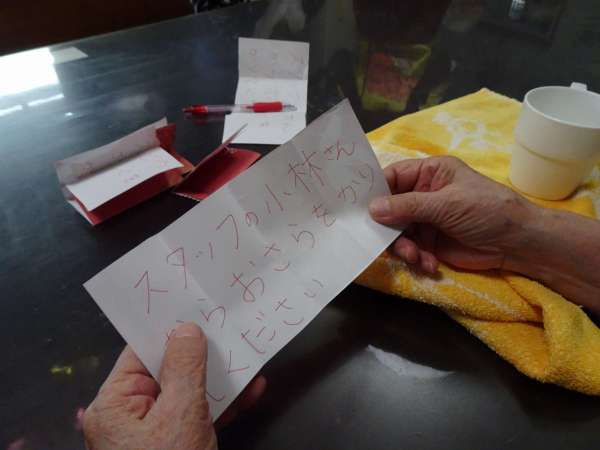 スタッフの小林さん
からおさらをかり
てください